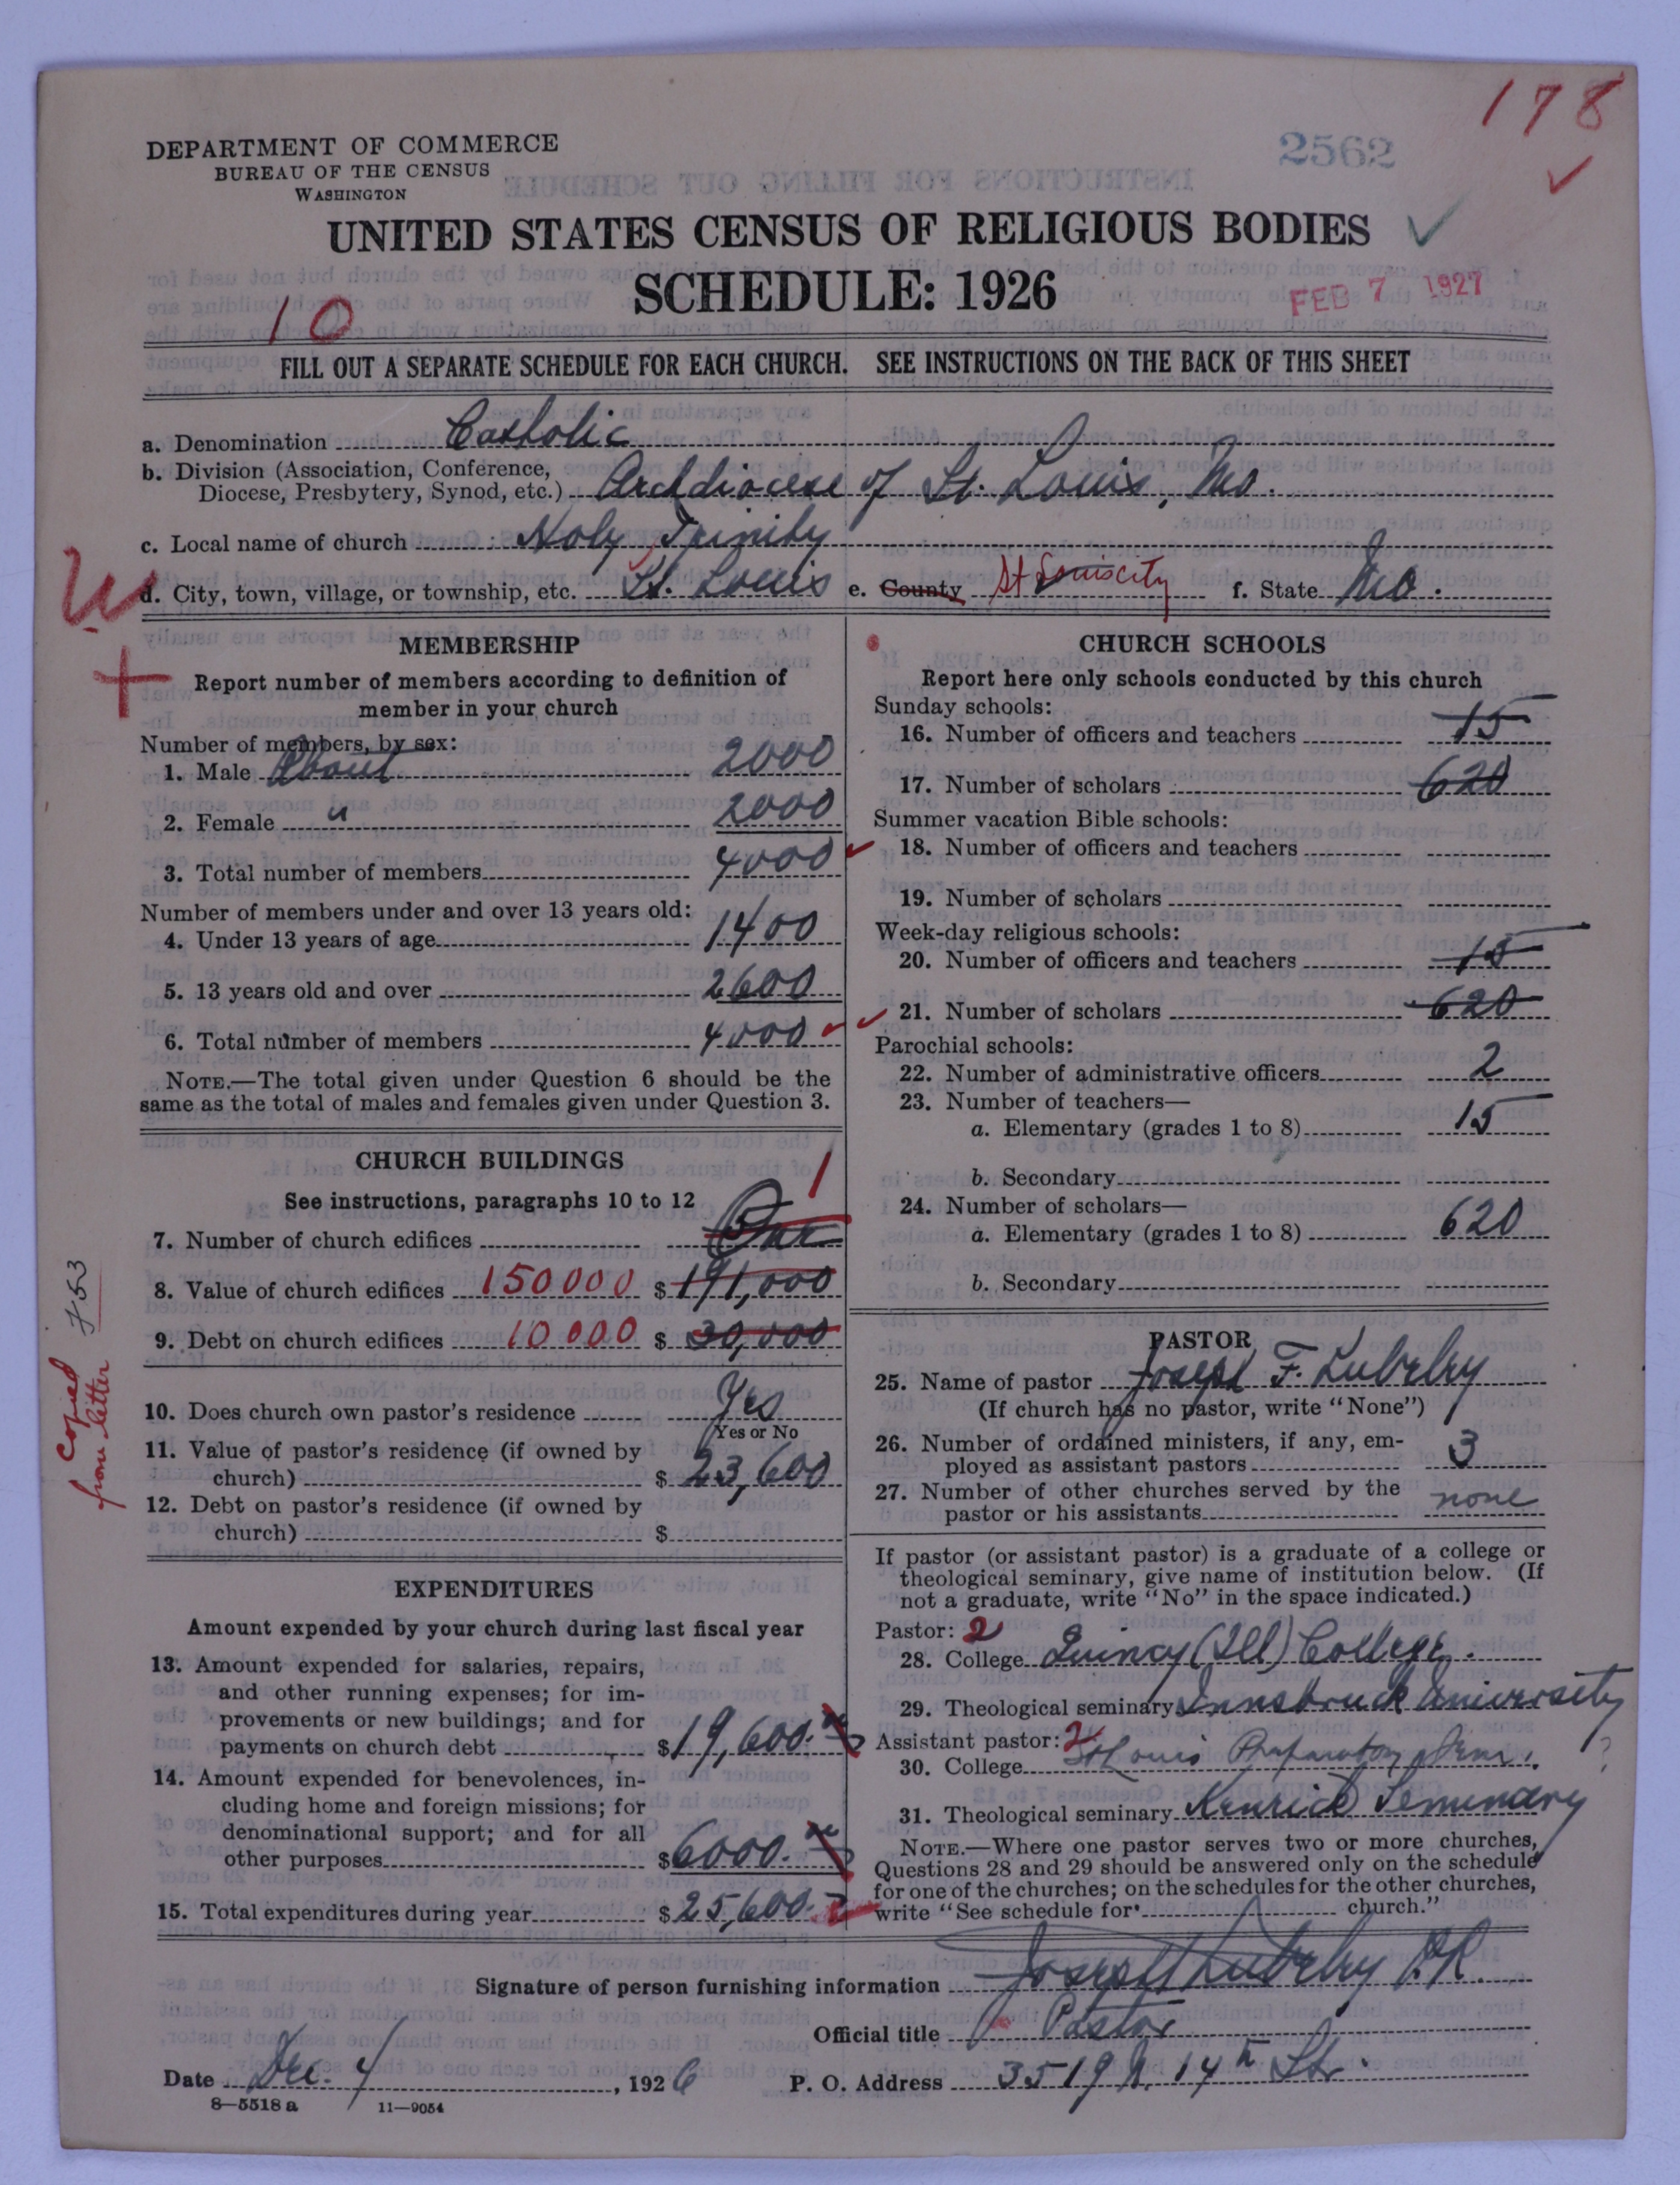 178
2562
DEPARTMENT OF COMMERCE
BUREAU OF THE CENSUS
WASHINGTON
UNITED STATES CENSUS OF RELIGIOUS BODIES
SCHEDULE: 1926
FEB 7 1927
10
FILL OUT A SEPARATE SCHEDULE FOR EACH CHURCH. SEE INSTRUCTIONS ON THE BACK OF THIS SHEET
a. Denomination Catholic
b. Division (Association, Conference,
Diocese, Presbytery, Synod, etc.) Archdiocese of St. Louis, Mo.
c. Local name of church Holy Trinity
d. City, town, village, or township, etc. St. Louis e. County St Louis city f. State Mo.
MEMBERSHIP
Report number of members according to definition of
member in your church
Number of members, by sex:
1. Male About 2000
2. Female " 2000
3. Total number of members 4000
Number of members under and over 13 years old:
4. Under 13 years of age 1400
5. 13 years old and over 2600
6. Total number of members 4000
NOTE.—The total given under Question 6 should be the
same as the total of males and females given under Question 3.
CHURCH BUILDINGS
See instructions, paragraphs 10 to 12
1
7. Number of church edifices One
8. Value of church edifices 150000 $ 191,000
9. Debt on church edifices 10000 $ 30,000
10. Does church own pastor's residence Yes
Yes or No
11. Value of pastor's residence (if owned by
church) $ 23,600
12. Debt on pastor's residence (if owned by
church) $
Copied
from letter
EXPENDITURES
Amount expended by your church during last fiscal year
13. Amount expended for salaries, repairs,
and other running expenses; for im-
provements or new buildings; and for
payments on church debt $ 19,600.
14. Amount expended for benevolences, in-
cluding home and foreign missions; for
denominational support; and for all
other purposes $ 6000.
15. Total expenditures during year $ 25,600.
CHURCH SCHOOLS
Report here only schools conducted by this church
Sunday schools:
16. Number of officers and teachers 15
17. Number of scholars 620
Summer vacation Bible schools:
18. Number of officers and teachers
19. Number of scholars
Week-day religious schools:
20. Number of officers and teachers 15
21. Number of scholars 620
Parochial schools:
22. Number of administrative officers 2
23. Number of teachers—
a. Elementary (grades 1 to 8) 15
b. Secondary
24. Number of scholars—
a. Elementary (grades 1 to 8) 620
b. Secondary
PASTOR
25. Name of pastor Joseph F. Lubeley
(If church has no pastor, write "None")
26. Number of ordained ministers, if any, em-
ployed as assistant pastors 3
27. Number of other churches served by the
pastor or his assistants none
If pastor (or assistant pastor) is a graduate of a college or
theological seminary, give name of institution below. (If
not a graduate, write "No" in the space indicated.)
Pastor: 2
28. College Quincy (Ill) College.
29. Theological seminary Innsbruck University
Assistant pastor: 2
30. College St Louis Preparatory Sem. ?
31. Theological seminary Kenrick Seminary
NOTE.—Where one pastor serves two or more churches,
Questions 28 and 29 should be answered only on the schedule
for one of the churches; on the schedules for the other churches,
write "See schedule for church."
Signature of person furnishing information Joseph Lubeley P.R.
Official title Pastor
Date Dec. 4, 1926 P. O. Address 3519 N. 14th St.
8—5518 a 11—9054